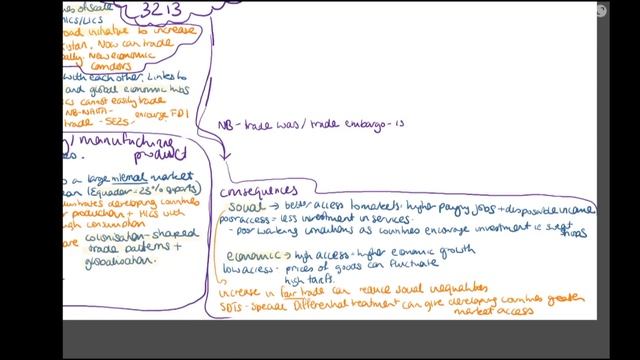 3.2.1.3
es of scale
MICs/LICs
oad initiative to increase
kistan. Now can trade
ally. New economic
corridors
with each other, Links to
and global economic hubs
cs cannot easily trade
NB-NAFTA- encourage FDI
trade - SEZs.
NB - trade wars / trade embargo - is
manufacturing
product
o a large internal market
an (Equador - 23% exports)
developing countries
production + HICs with
consumption
are colonisation - shaped
trade patterns +
globalisation.
consequences
social → better access to markets - higher paying jobs + disposable income
poor access = less investment in services.
- poor working conditions as countries encourage investment ie sweat
shops
economic → high access - higher economic growth
low access - prices of goods can fluctuate
high tariffs.
increase in fair trade can reduce social inequalities
SDTs - Special Differential treatment can give developing countries greater
market access